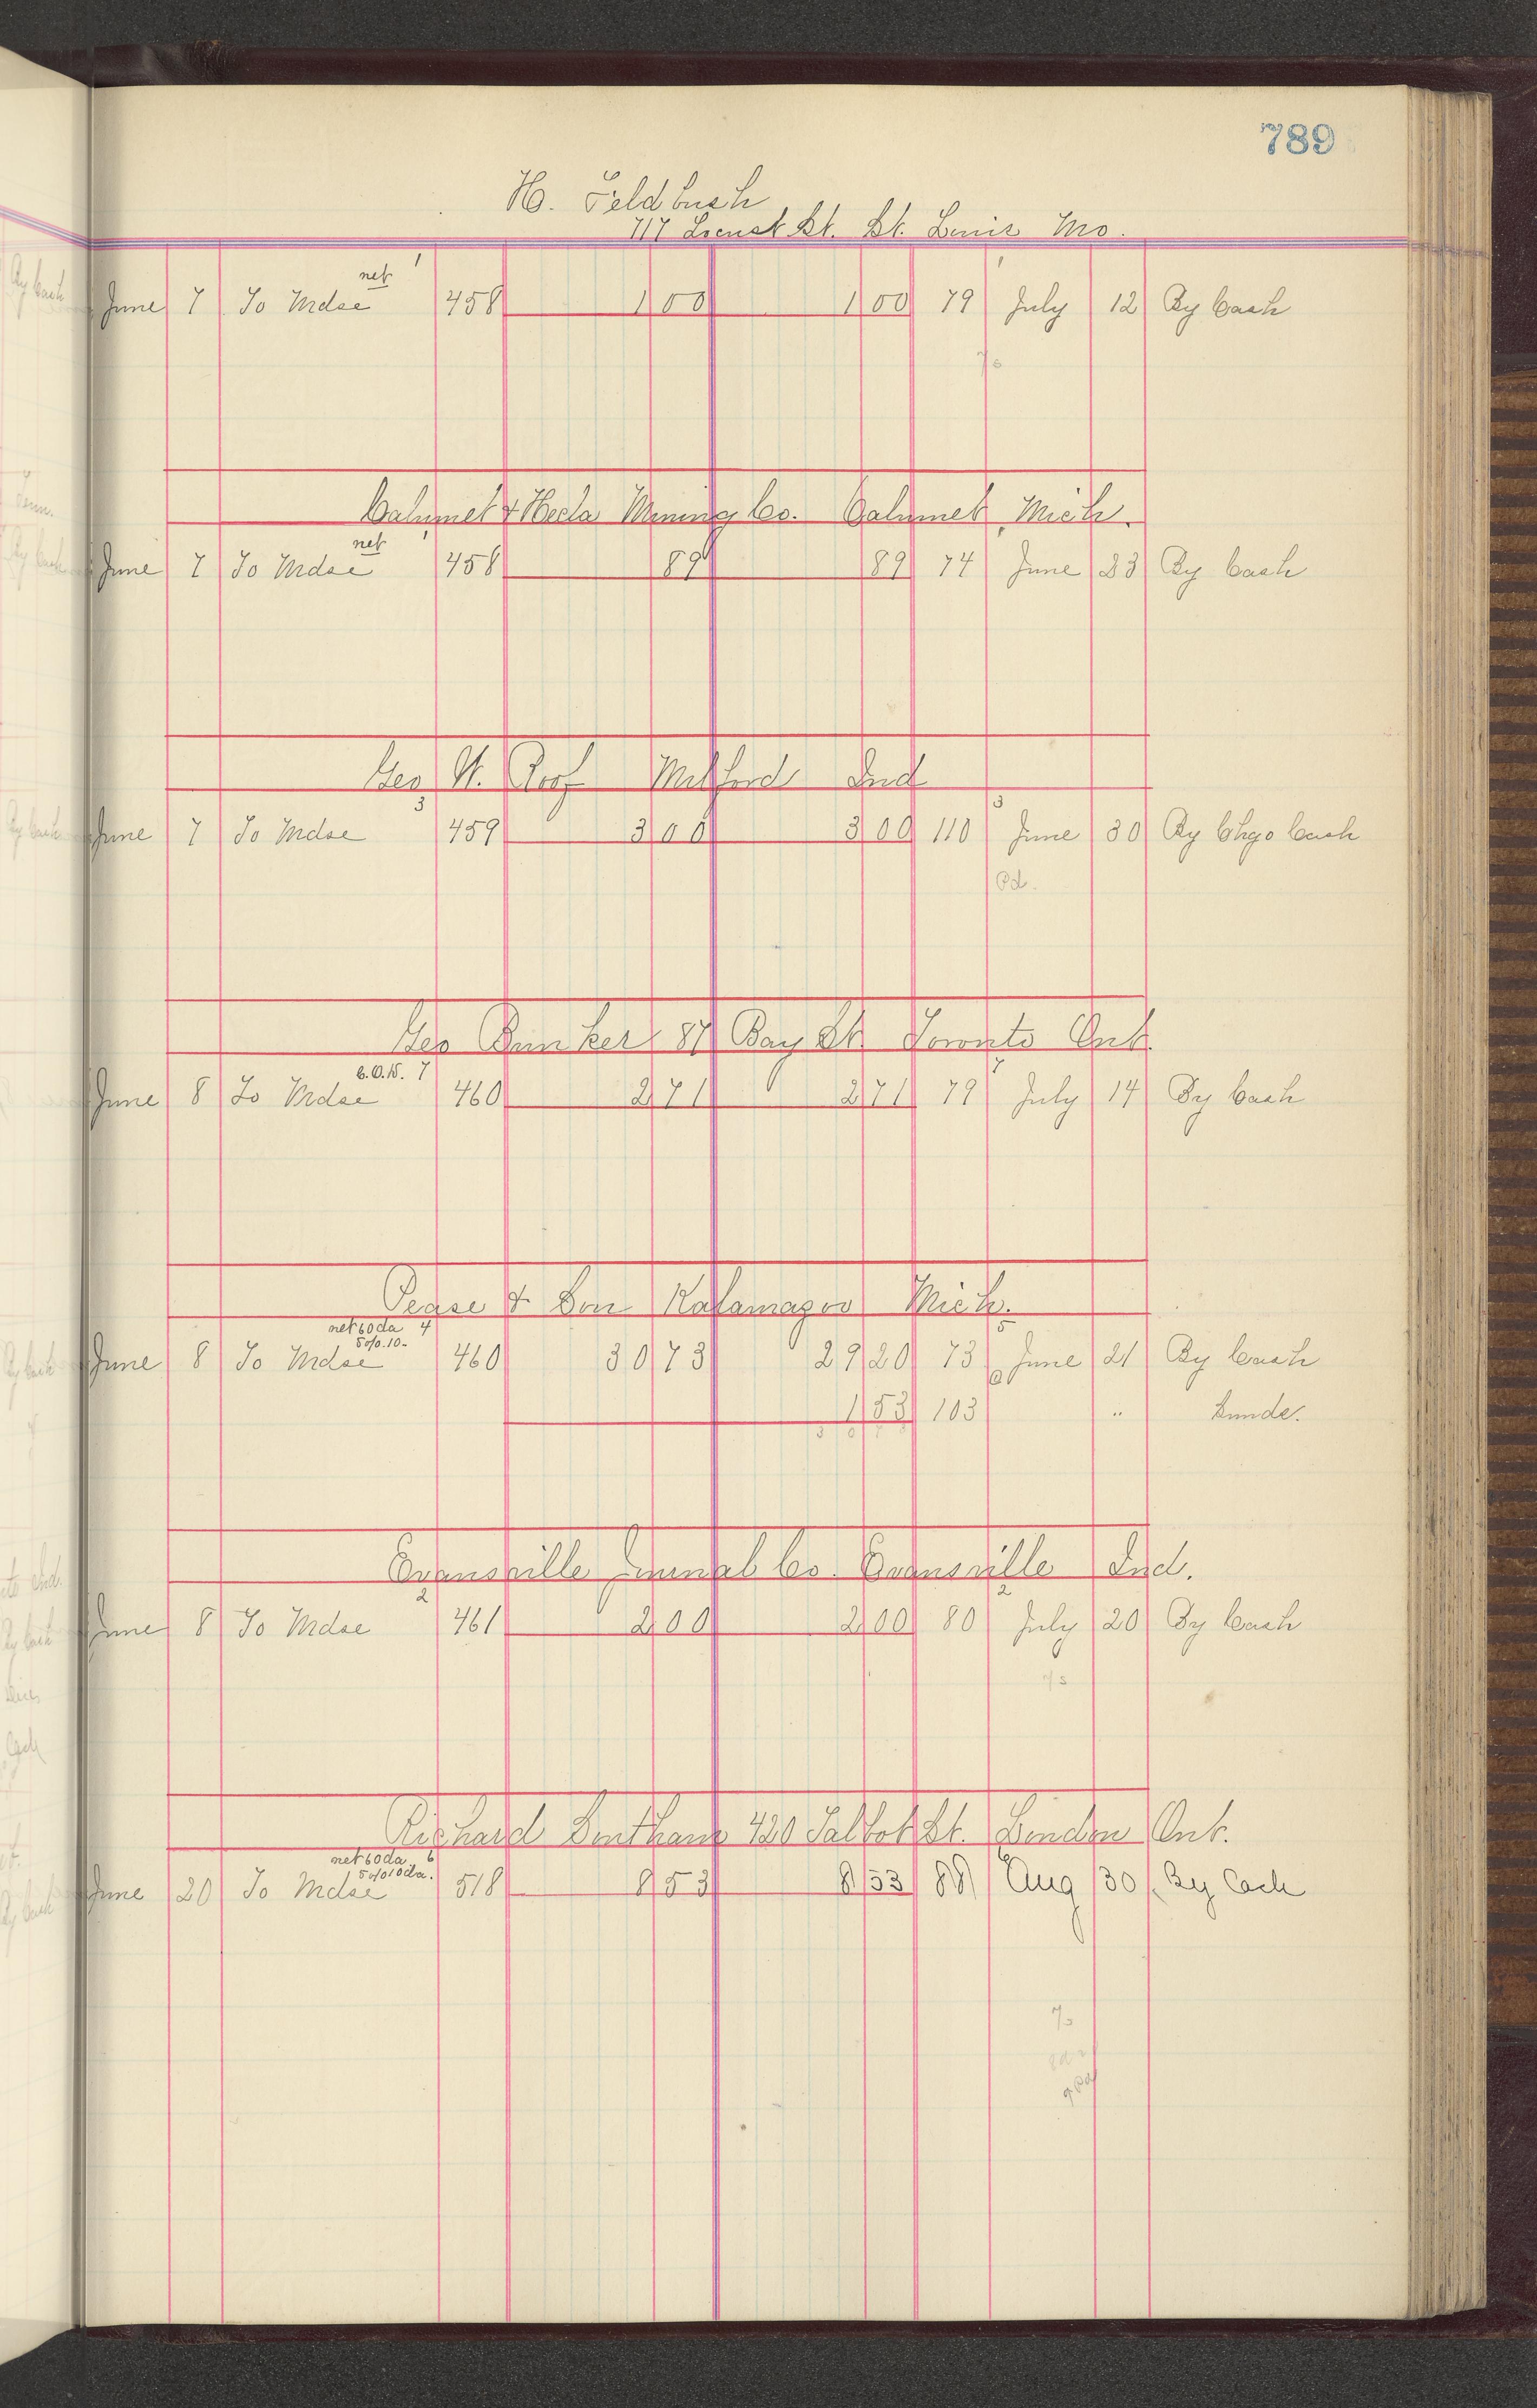 789
H. Feldbush
717 Locust St. St. Louis Mo.
net 1 1
June 7 To Mdse 458 1 00 1 00 79 July 12 By Cash
Calumet & Hecla Mining Co. Calumet, Mich.
net 1
June 7 To Mdse 458 89 89 74 June 23 By Cash
Geo W. Milford Ind
3 3
June 7 To Mdse 459 3 00 3 00 110 June 30 By Chgo Cash
Pd.
Geo Bunker 87 Bay St Toronto Ont.
C.O.D. 7 7
June 8 To Mdse 460 2 71 2 71 79 July 14 By Cash
Pease & Son Kalamazoo Mich.
net 60 da 4 5
5% 10-
June 8 To Mdse 460 30 73 29 20 73 June 21 By Cash
1 53 103 " Sunds.
3 0 7 3
Evansville Journal Co. Evansville Ind.
2 2
June 8 To Mdse 461 2 00 2 00 80 July 20 By Cash
7/5
Richard 420 Talbot St. London Ont.
net 60 da 6 6
5% 10 da.
June 20 To Mdse 518 8 53 8 53 88 Aug 30 By Cash